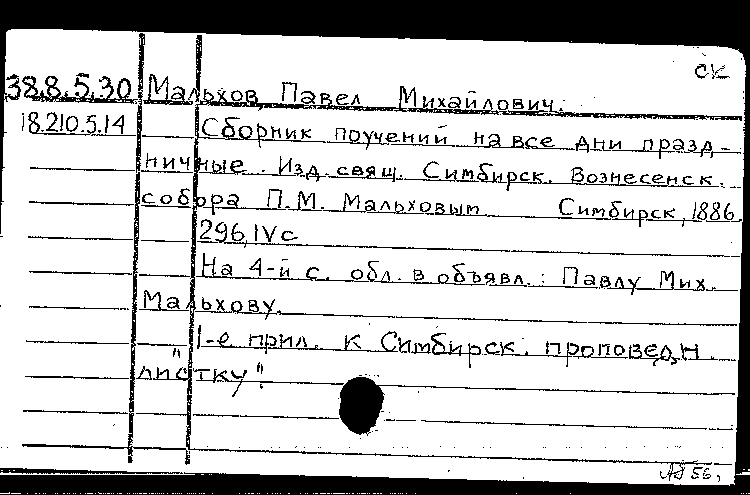 СК
38.8.5.30 Мальхов, Павел Михайлович.
18.210.5.14 Сборник поучений на все дни празд-
ничные. Изд. свящ. Симбирск. Вознесенск.
собора П.М. Мальховым. Симбирск, 1886.
296, IV с
На 4-й с. обл. в объявл.: Павлу Мих.
Мальхову.
1-е прил. к Симбирск. проповедн.
"листку".
56,